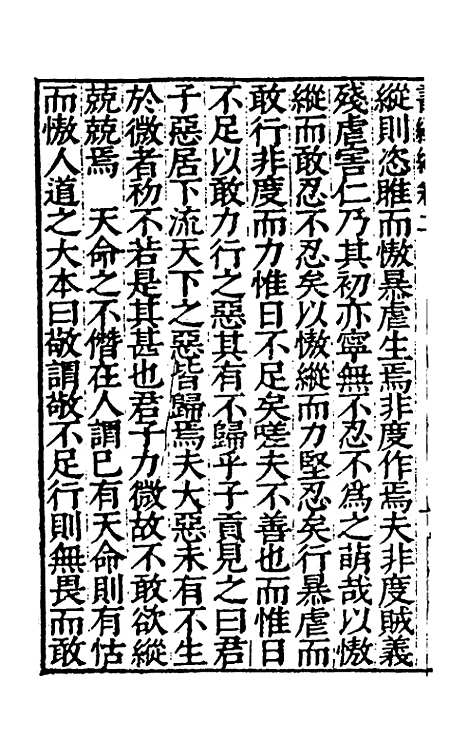 縱則恣睢而慠暴虐生焉非度作焉夫非度賊義
殘虐害仁乃其初亦寧無不忍不為之萌哉以慠
縱而敢忍不忍矣以慠縱而力堅忍矣行暴虐而
敢行非度而力惟日不足矣嗟夫不善也而惟日
不足以敢力行之惡其有不歸乎子貢見之曰君
子惡居下流天下之惡皆歸焉夫大惡未有不生
於微者初不若是其甚也君子力微故不敢欲縱
兢兢焉　天命之不僭在人謂已有天命則有怙
而慠人道之大本曰敬謂敬不足行則無畏而敢